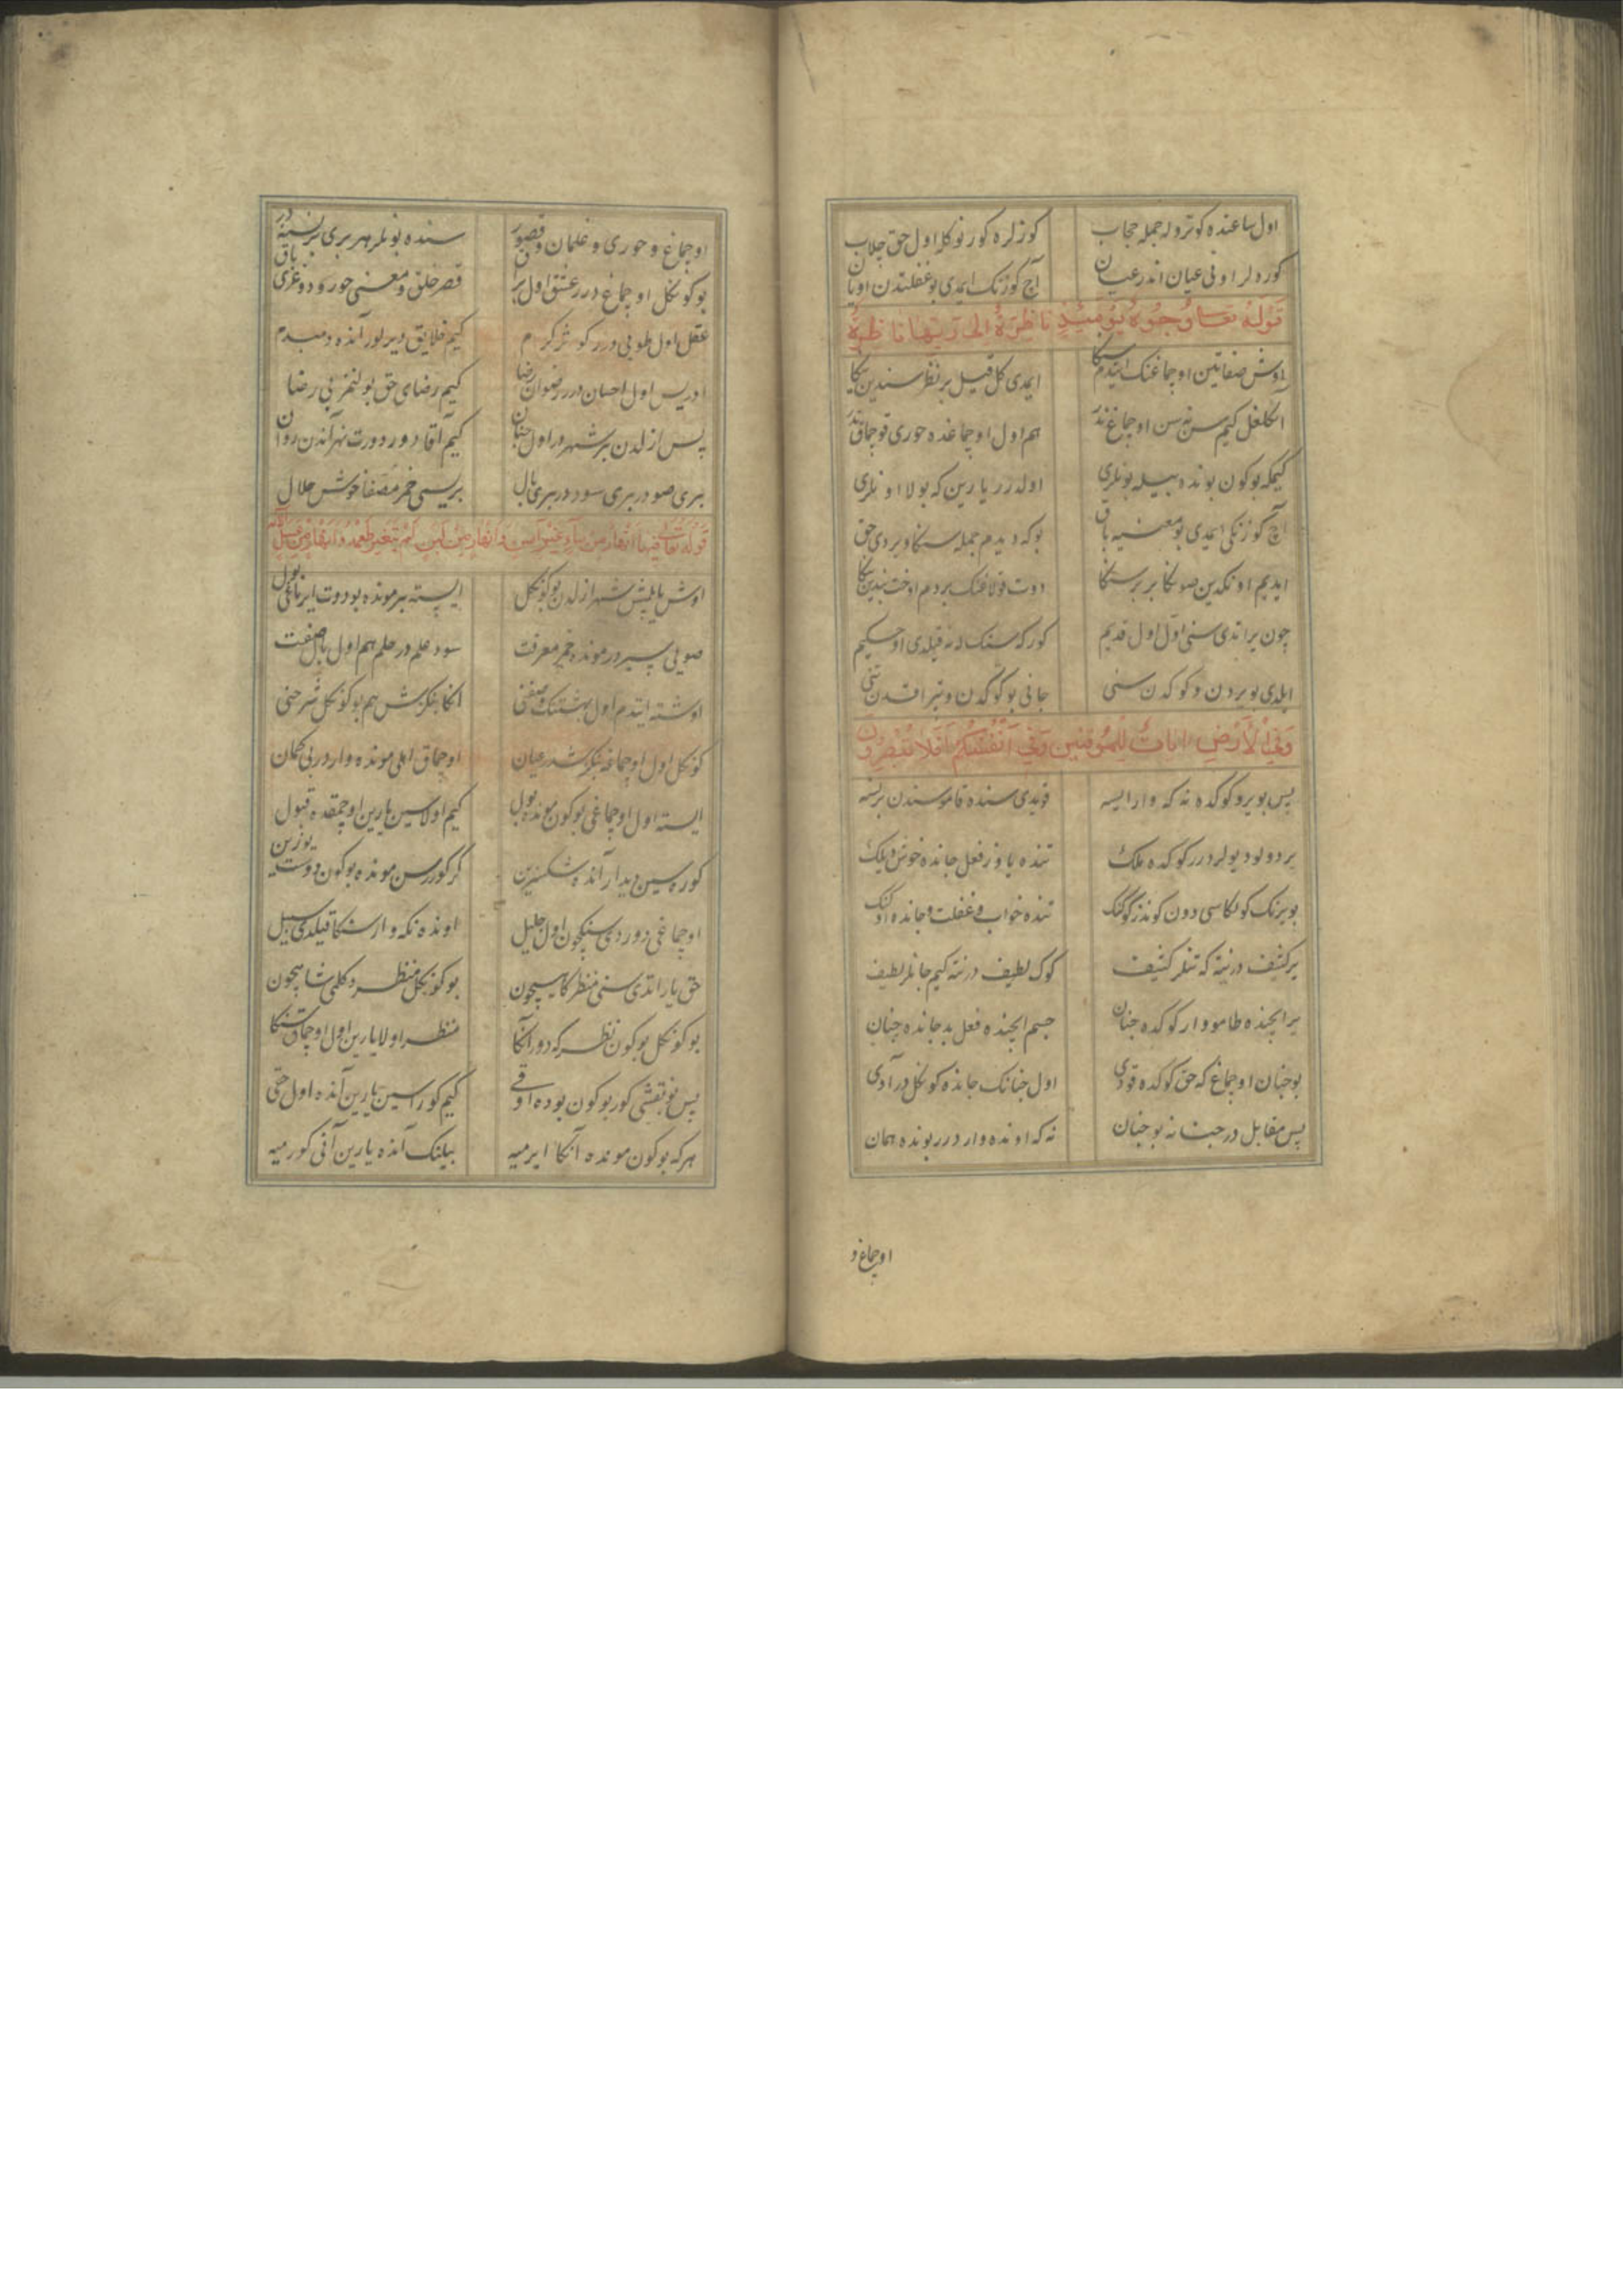 اول ساعنده کوتروله جمله حجاب کوزلره کورنوکله اول حق چلاب
کوره لر اونی عیان اندر عیان آچ کوزنک ایمدی بو غفلتدن اویان
قوله تعا وُجُوهٌ یَوْمَئِذٍ نَاظِرَةٌ اِلٰی رَبِّهَا نَاظِرَةٌ
اوش صفاتین اوچماغنک ایتدم سنکا ایمدی کل قیل بر نظر سندین یکا
آنکلغل کیم سن نه سن اوچماغ ندر هم اول اوچماغده حوری قوچماق ندر
کیمکه بوکون بونده بیله بونلری اولدرر یارین که بولا اونلری
آچ کوزنکی ایمدی بو معنیه باق بوکه دیدم جمله سنکا ویردی حق
ایدیم اونکدین صونکا بر بر سنکا دوت قولاغنک بردم اوخت بندین یکا
چون یراتدی سنی اول اول قدیم کورکه سنک له نه قیلدی اوحکیم
ایلدی بویردن و کوکدن سنی جانی بوکوکدن و تبراقدن تنی
وَفِی الْاَرْضِ اٰیَاتٌ لِلْمُوقِنِینَ وَفِی اَنْفُسِکُمْ اَفَلَا تُبْصِرُونَ
پس بویروکوکده نه که وارایسه قویدی سنده قاموسندن برنسه
یرده دولودیولردرر کوکده ملک تنده یاوز فعل جانده خوش دیلک
بویرنک کولکاسی دون کوندز کوکنک تنده خواب و غفلت و جانده اونک
یر کثیف درنیته که تنلر کثیف کوک لطیف درنیته کیم جانلر لطیف
یر ایچنده طامو وار کوکده جنان جسم ایچنده فعل بد جانده چنان
بوجنان اوچماغ که حق کوکده قودی اول جنانک جانده کونکل درآدی
پس مقابل در جنانه بوجنان نه که اونده وار درر بونده همان
اوچماغ و
اوچماغ و حوری و غلمان و قصور سنده بونلر هر بری برنسنه در
بوکونکل اوچماغ درر عشق اول براق قصر خلق و معنی حور ودوغری باق
عقل اول طوبی درر کوثر کرم کیم خلایق دیرلور آنده دمبدم
ادریس اول احسان درر رضوان رضا کیم رضای حق بولنمز بی رضا
پس ازلدن بر شهر در اول جنان کیم آقا دورر دورت نهر آندن روان
بری صودر بری سوددر بری بال بریسی خمر مصفا خوش حلال
قوله تعا فِیهَا اَنْهَارٌ مِنْ مَاءٍ غَیْرِ آسِنٍ وَاَنْهَارٌ مِنْ لَبَنٍ لَمْ یَتَغَیَّرْ طَعْمُهُ وَاَنْهَارٌ مِنْ عَسَلٍ
اوش یاپلمش شهر ازلدن بوکونکل ایسته بر مونده بودورت ایرماغی بول
صویی سیردر مونده خمر معرفت سود علم در حلم هم اول بال صفت
اوشته ایتدم اول بهشتنک وصفنی انکا بنکزتمش هم بوکونکل شرحنی
کونکل اول اوچماغه بنکزتمشدر عیان اوچماق اهلی مونده واردر بی کمان
ایسته اول اوچماغی بوکون مونده بول کیم اولاسین یارین اوچمقده قبول
کوره سین دیدار آنده شکسزین کر کورر سن مونده بوکون دوست یوزین
اوچماغی دوردی سنکچون اول جلیل اونده نکه وار سنکا قیلدی سبیل
حق یاراتدی سنی منظر کاهیچون بوکونکل منظر دکلمی شاهچون
بوکونکل بوکون نظرکه دور آنکا منظر اولا یارین اول اوچماق سنکا
پس بو نقشی کور بوکون بوده اوقی کیم کوراسین یارین آنده اول حقی
هرکه بوکون مونده آنکا ایرمیه بیلنک آنده یارین آنی کورمیه